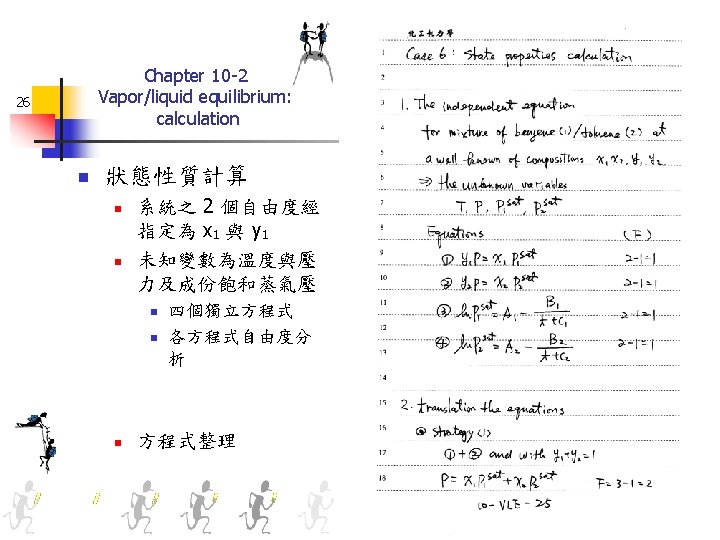 26
Chapter 10-2
Vapor/liquid equilibrium:
calculation
狀態性質計算
系統之 2 個自由度經
指定為 x1 與 y1
未知變數為溫度與壓
力及成份飽和蒸氣壓
四個獨立方程式
各方程式自由度分
析
方程式整理
化工熱力學
1 Case 6 : State properties calculation
2
3 1. The independent equation
4 for mixture of benzene (1) / toluene (2) at
5 a well known of compositions x1 x2, y1 y2
6 ⇒ the unknown variables
7 T, P, P1sat, P2sat
8 Equations (F)
9 ① y1P = x1 P1sat 2-1=1
10 ② y2P = x2 P2sat 2-1=1
11 ③ lnP1sat = A1 - B1/(t+C1) 2-1=1
12
13 ④ lnP2sat = A2 - B2/(t+C2) 2-1=1
14
15 2. translation the equations
16 strategy (1)
17 ① + ② and with y1+y2=1
18 P = x1P1sat + x2P2sat F=3-1=2
10-VLE-25